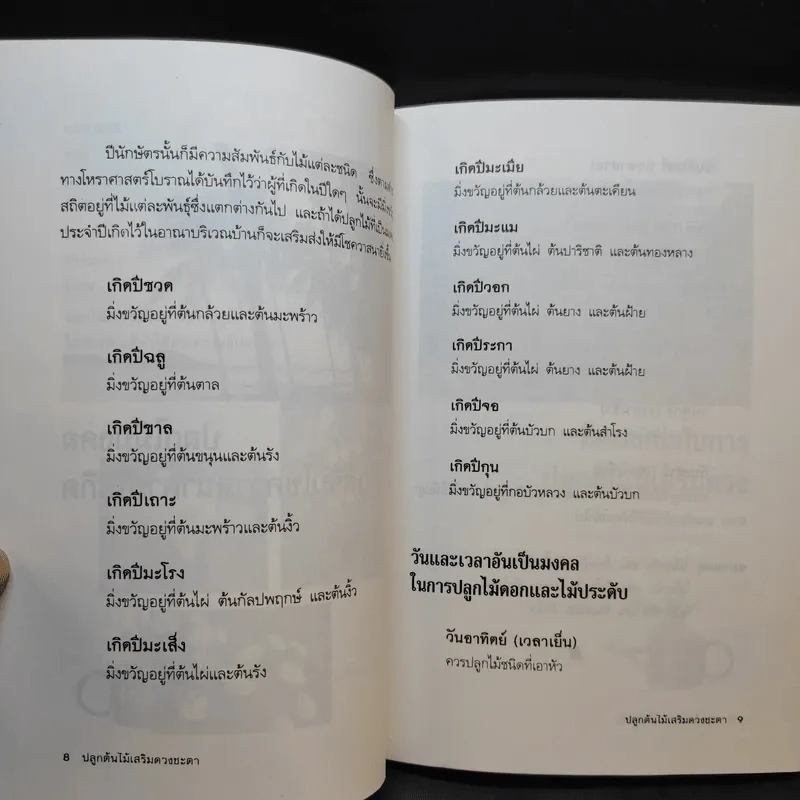 ปีนักษัตรนั้นก็มีความสัมพันธ์กับไม้แต่ละชนิด ซึ่งตาม
ทางโหราศาสตร์โบราณได้บันทึกไว้ว่าผู้ที่เกิดในปีใดๆ นั้นจะมีมิ่งขวัญ
สถิตอยู่ที่ไม้แต่ละพันธุ์ซึ่งแตกต่างกันไป และถ้าได้ปลูกไม้ที่เป็นมงคล
ประจำปีเกิดไว้ในอาณาบริเวณบ้านก็จะเสริมส่งให้มีโชควาสนายิ่งขึ้น
เกิดปีชวด
มิ่งขวัญอยู่ที่ต้นกล้วยและต้นมะพร้าว
เกิดปีฉลู
มิ่งขวัญอยู่ที่ต้นตาล
เกิดปีขาล
มิ่งขวัญอยู่ที่ต้นขนุนและต้นรัง
เกิดปีเถาะ
มิ่งขวัญอยู่ที่ต้นมะพร้าวและต้นงิ้ว
เกิดปีมะโรง
มิ่งขวัญอยู่ที่ต้นไผ่ ต้นกัลปพฤกษ์ และต้นงิ้ว
เกิดปีมะเส็ง
มิ่งขวัญอยู่ที่ต้นไผ่และต้นรัง
8 ปลูกต้นไม้เสริมดวงชะตา
เกิดปีมะเมีย
มิ่งขวัญอยู่ที่ต้นกล้วยและต้นตะเคียน
เกิดปีมะแม
มิ่งขวัญอยู่ที่ต้นไผ่ ต้นปาริชาติ และต้นทองหลาง
เกิดปีวอก
มิ่งขวัญอยู่ที่ต้นไผ่ ต้นยาง และต้นฝ้าย
เกิดปีระกา
มิ่งขวัญอยู่ที่ต้นไผ่ ต้นยาง และต้นฝ้าย
เกิดปีจอ
มิ่งขวัญอยู่ที่ต้นบัวบก และต้นสำโรง
เกิดปีกุน
มิ่งขวัญอยู่ที่กอบัวหลวง และต้นบัวบก
วันและเวลาอันเป็นมงคล
ในการปลูกไม้ดอกและไม้ประดับ
วันอาทิตย์ (เวลาเย็น)
ควรปลูกไม้ชนิดที่เอาหัว
ปลูกต้นไม้เสริมดวงชะตา 9